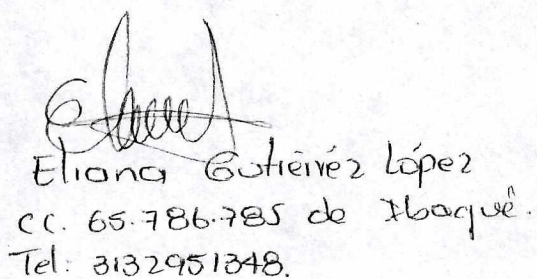 Eliana Gutiérréz López
CC. 65.786.785 de Ibagué.
Tel: 3132951348.